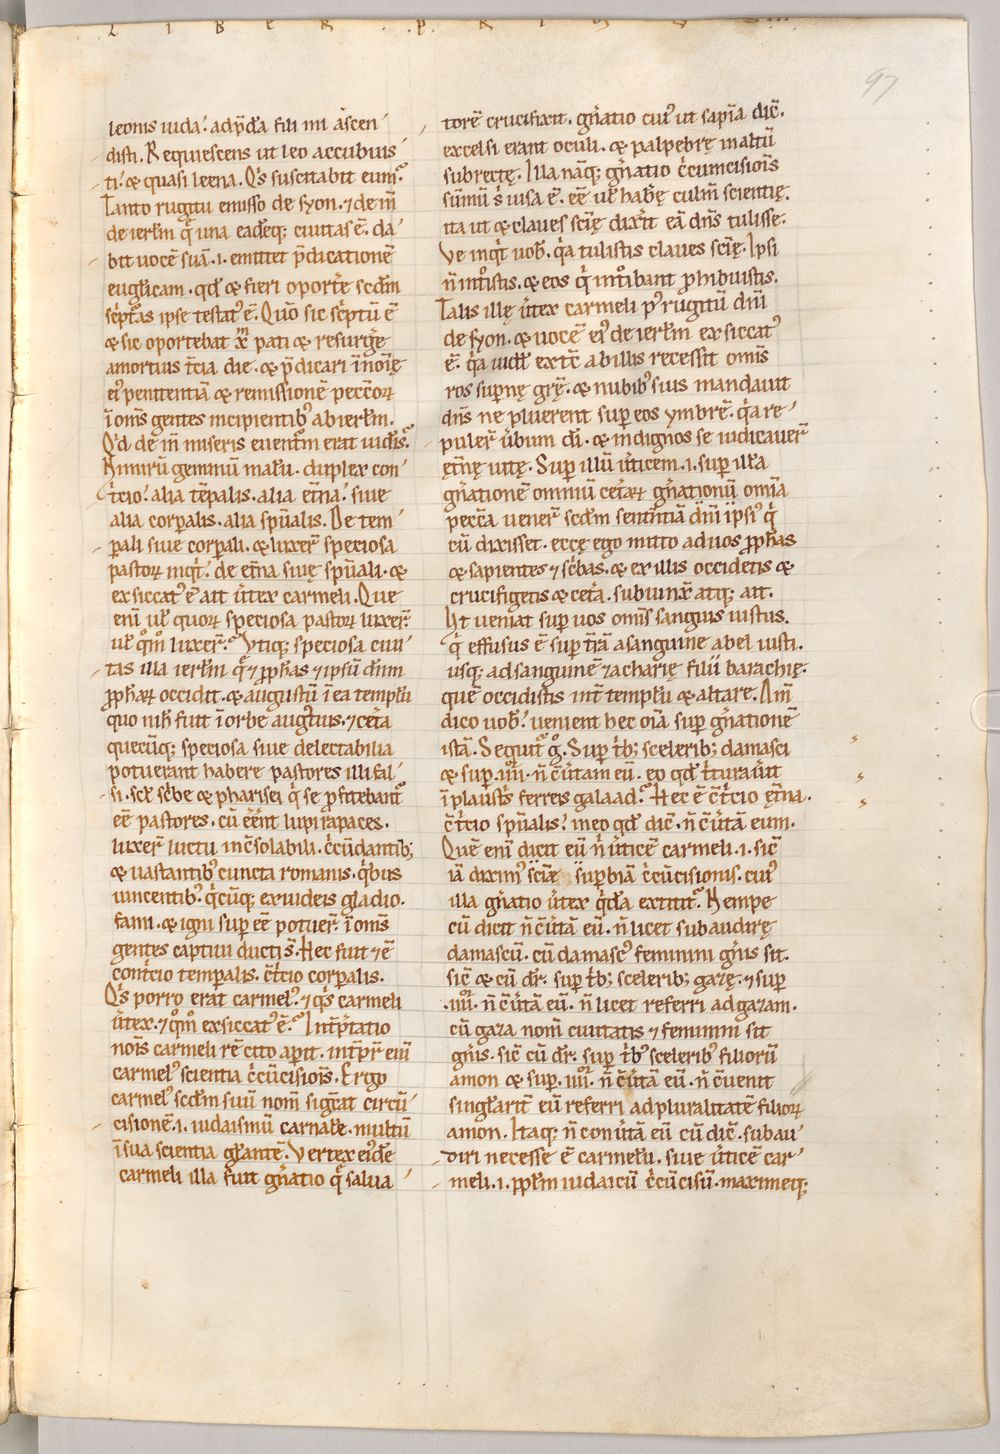 L I B E R . P R I M U S
97
leonis iuda? adp̄da fili mi ascen/
disti. Requiescens ut leo accubuis/
ti? & quasi leena. Q̄s suscitabit eum?
Tanto rugitu emisso de syon. ⁊ de m̄
de ierl̄m q̄ una eadēq; ciuitas ē. da/
bit uocē suā .i. emittet p̄dicationē
eug̃licam. qd̄ & fieri oportē scd̄m
sc̄pt̃as ipse testat᷒ ē. Quō sic sc̄ptū ē
& sic oportebat xp̄m pati & resurg̃e
amortuis t̃cia die. & p̄dicari ī nōīe
ei᷒ penitentiā & remissionē peccōꝝ
ī om̄s gentes incipientib᷒ ab ierl̄m.
Qd̄ dē m̄ miseris euent̄m erat iud̃is?
Nimirū geminū malū. duplex con/
t̃cio? alia tēpalis. alia et̃na? siue
alia corꝑalis. alia spūalis. De tem/
ꝑali siue corꝑali. & luxer̃ speciosa
pastoꝝ inqt̃? de et̃na siuę spūali. &
exsiccat᷒ ē ait ũtex carmeli. Que
eni ul̃ quoꝝ speciosa pastoꝝ luxer̃?
ul̃ qͦm̊ luxer̃? Vtiq; speciosa ciui/
tas illa ierl̄m q̄ ⁊ ꝓphas ⁊ ipsū dn̄m
ꝓphaꝝ occidit. & augustū ī ea templū
quo nih̃ fuit ī orbe augustius. ⁊ cet̃a
quecūq; speciosa siue delectabilia
potuerant habere pastores illi fal/
si. scl̃ sc̃be & pharisei q̄ se ꝓfitebant᷒
ēē pastores. cū ēēnt lupi rapaces.
luxer̃ luctu incōsolabili. c̃cūdantib;
& uastantib᷒ cuncta romanis. q̄bus
uincentib᷒ q̄cūq; ex iudeis gladio.
fami. & igni suꝑeē potuer̃. ī om̄s
gentes captiui ducti s̄. Hec fuit ⁊ ē
cont̃cio temꝑalis. c̄t̃cio corꝑalis.
Q̄s porro erat carmel᷒. ⁊ q̄s carmeli
ũtex. ⁊ qͦm̊ exsiccat᷒ ē? Int̃p̄tatio
nōis carmeli rē cito aꝑit. int̃p̄r enī
carmel᷒ scientia c̃cūcisiōis. Ergo
carmel᷒ scd̄m suū nom̄ sig̃eat circū/
cisionē .i. iudaismū carnalē. multū
ī sua scientia gl̃iantē. Vertex ei᷒dē
carmeli illa fuit gñatio q̄ salua/
torē crucifixit. gñatio cui᷒ ut sapiā dic̄.
excelsi erant oculi. & palpebrę in altū
subrectę. Illa nāq; gñatio c̃cumcisiōis
sūmū s̃ uisa ē. ēē ul̃ habē culm̄ scientię.
ita ut & claues scię dixit̃ eā dn̄s tulisse.
Ve inqt̃ uob̃. q̃a tulistis claues scię. Ipsi
n̄ int̊istis. & eos q̄ int̊ibant ꝓhibuistis.
Talis illę ũtex carmeli p᷒ rugitū dn̄i
de syon. & uocē ei᷒ de ierl̄m exsiccat᷒
ē. q̃a uidl̃ extc̄ ab illis recessit om̄is
ros suꝑnę grę. & nubib᷒ suis mandauit
dn̄s ne pluerent suꝑ eos ymbrē. q̃a re/
puler̃ ũbum dī. & indignos se iudicauer̃
et̃nę uitę. Suꝑ illū ũticem .i. suꝑ illā
gñationē omniū cet̃aꝝ gñationū omīa
pecc̄a uener̃ scd̄m sententiā dn̄i ipsi᷒ q̄
cū dixisset. eccę ego mitto ad uos ꝓphas
& sapientes ⁊ sc̃bas. & ex illis occidetis &
crucifigetis & cet̃a. subiunx̃ atq; ait.
Ut ueniat suꝑ uos om̄is sanguis iustus.
q̄ effusus ē suꝑ t̃rā a sanguine abel iusti.
usq; ad sanguinē zacharię filii barachię.
quē occidistis int̃ templū & altare. Am̄
dico uob̃? uenient hec oīa suꝑ gñationē
istā. Sequit᷒ g̊. Suꝑ t̃b; sceleribȝ damasci
& suꝑ .iiii. n̄ c̄ũtam eū. eo qd̄ t̃turauĩt
ī plaustris ferreis galaad? Hec ē c̄t̃cio et̃na.
c̄t̃cio spūalis? in eo qd̄ dic̄. n̄ c̄ũtā eum.
Quē eni dicit eū n̄ ũticē carmeli .i. sic̄
iā dixim᷒ scię suꝑbiā c̃cūcisionis. cui᷒
illa gñatio ũtex q̄dā extitit? Nempe
cū dicit n̄ c̄ũtā eū. n̄ licet subaudirę
damascū. cū damasc᷒ feminini gñis sit.
sic̄ & cū dr̄. suꝑ t̃b; sceleribȝ gazę. ⁊ suꝑ
.iiii. n̄ c̄ũtā eū. n̄ licet referri ad gazam.
cū gaza nom̄ ciuitatis ⁊ feminini sit
gñis. sic̄ cū dr̄. suꝑ t̃b᷒ scelerib᷒ filiorū
amon & suꝑ .iiii. n̄ c̄ũtā eū. n̄ c̄uenit
singl̃arit̃ eū referri ad pluralitatē filioꝝ
amon. Itaq; n̄ conũtā eū cū dic̄. subau/
diri necesse ē carmelū. siue ũticē car/
meli .i. ꝓplm̄ iudaicū c̃cūcisū. maximeq;